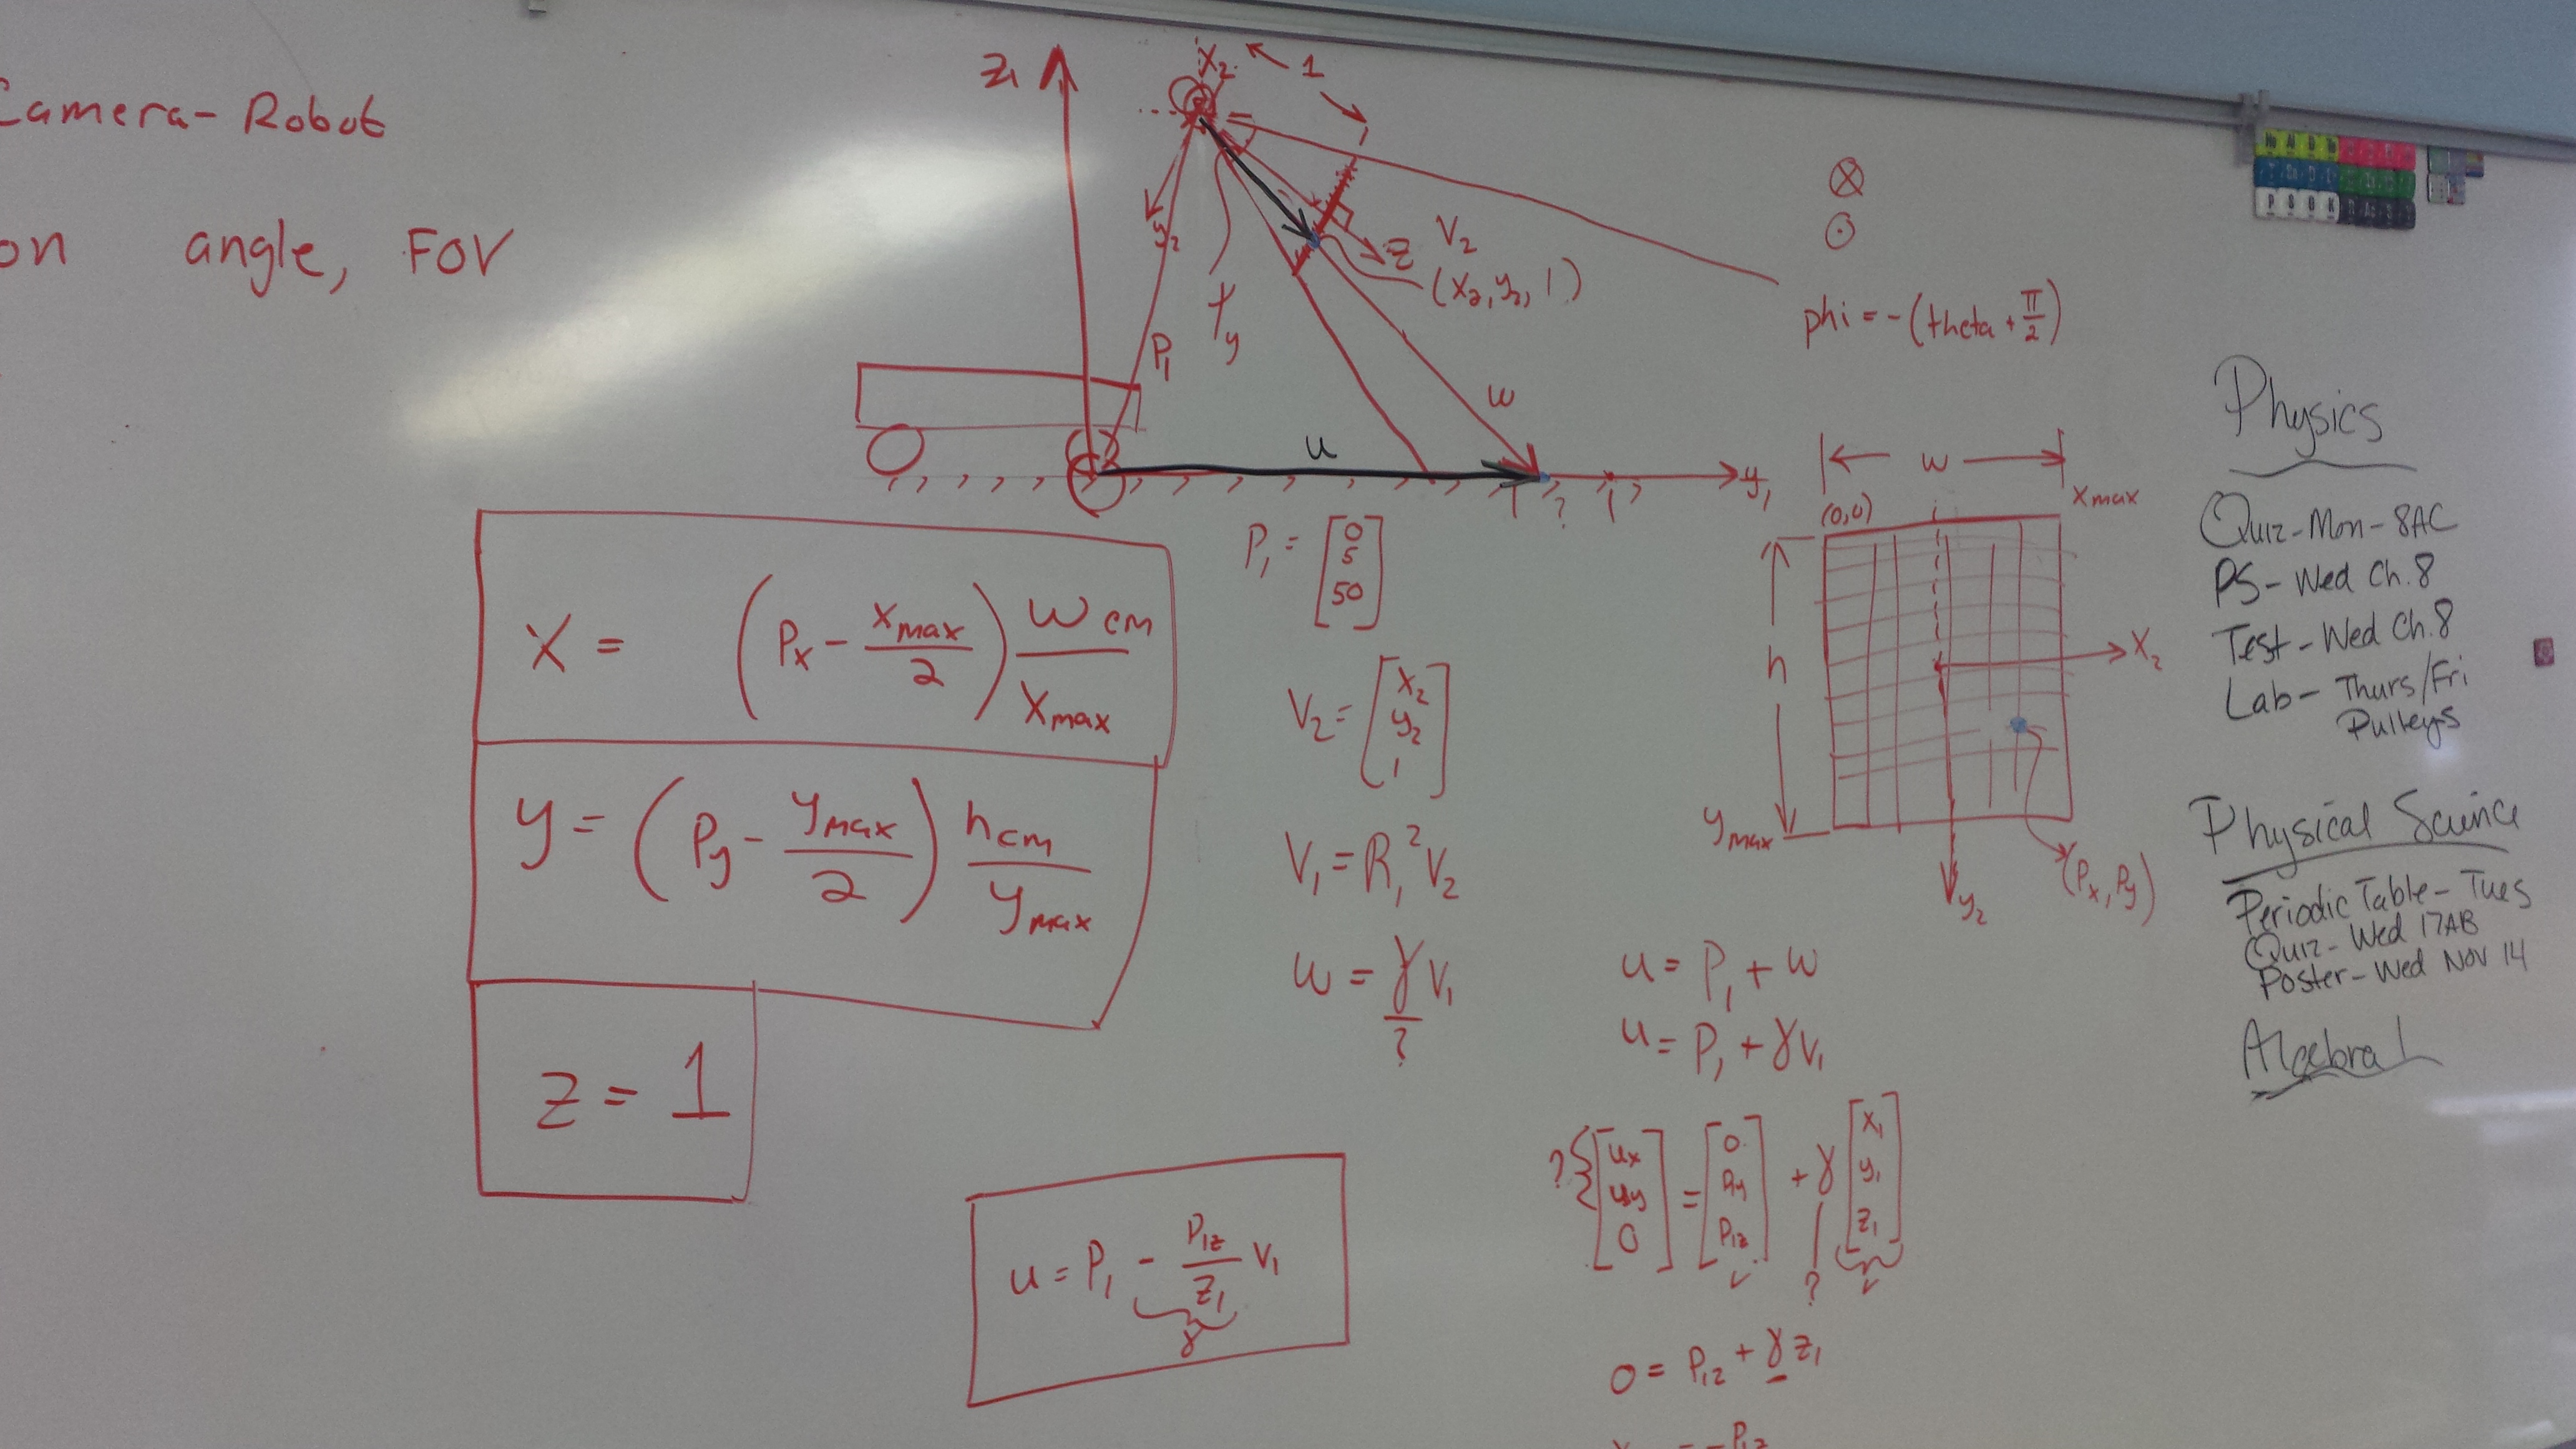 Camera-Robot
on angle, FOV
z₁
x₂
1
y₂
P₁
γy
z
V₂
(x₂, y₂, 1)
w
u
y₁
?
phi = -(theta + π/2)
x = (Px - xmax/2) w cm/xmax
y = (Py - ymax/2) h cm/ymax
z = 1
P₁ = [0 5 50]
V₂ = [x₂ y₂ 1]
V₁ = R₁² V₂
w = γ V₁
?
u = P₁ - P₁z/z₁ V₁
γ
w
(0,0)
xmax
h
x₂
ymax
y₂
(Px, Py)
u = P₁ + w
u = P₁ + γV₁
? { [ux uy 0] = [0 Py P₁z] + γ [x₁ y₁ z₁]
?
0 = P₁z + γ z₁
= -P₁z
Physics
Quiz-Mon-8AC
PS-Wed Ch.8
Test-Wed Ch.8
Lab-Thurs/Fri
Pulleys
Physical Science
Periodic Table-Tues
Quiz-Wed 17AB
Poster-Wed Nov 14
Algebra 1